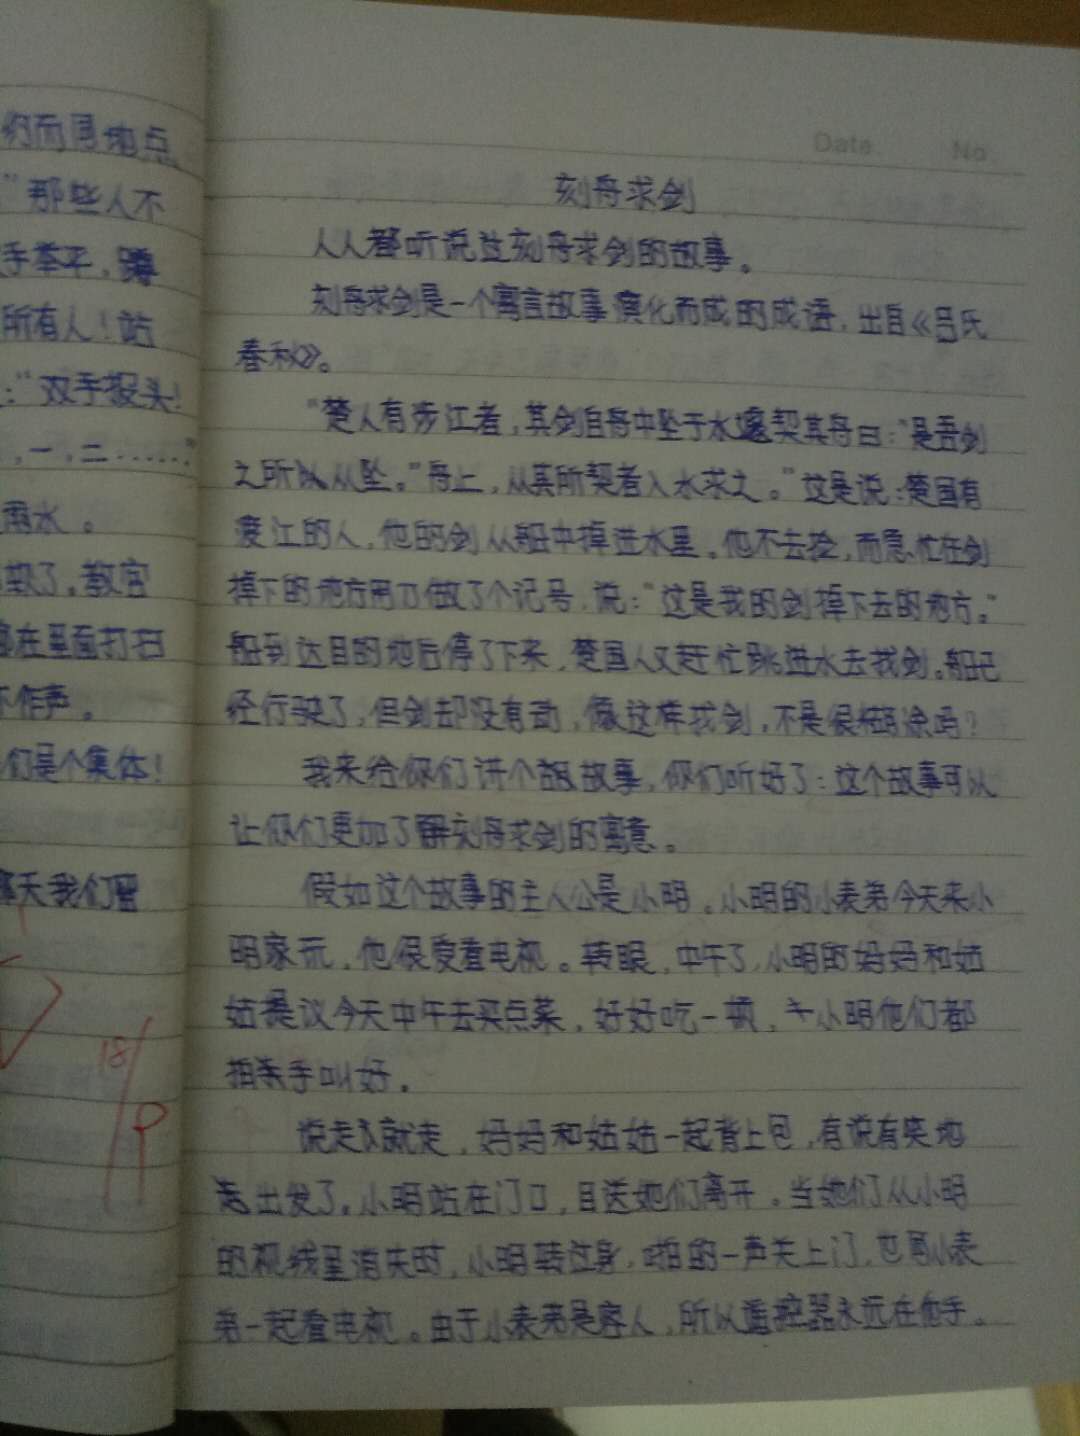 的而且地点
"那些人不
手举平,蹲
所有人!站
:"双手报头!
,一,二……"
雨水。
软了。教官
在里面打扫
不作声。
们是个集体!
天我们
18/
Date No
刻舟求剑
人人都听说过刻舟求剑的故事。
刻舟求剑是一个寓言故事演化而成的成语,出自《吕氏
春秋》。
"楚人有涉江者,其剑自舟中坠于水遽契其舟曰:"是吾剑
之所以从坠。"舟上,从其所契者入水求之。"这是说:楚国有
渡江的人,他的剑从船中掉进水里。他不去捡,而急忙在剑
掉下的地方用刀做了个记号,说:"这是我的剑掉下去的地方。"
船到达目的地后停了下来,楚国人又赶忙跳进水去找剑。船已
经行驶了,但剑却没有动,像这样找剑,不是很糊涂吗?
我来给你们讲个故事,你们听好了:这个故事可以
让你们更加了解刻舟求剑的寓意。
假如这个故事的主人公是小明。小明的小表弟今天来小
明家玩,他很爱看电视。转眼,中午了,小明的妈妈和姑
姑提议今天中午去买点菜,好好吃一顿,小明他们都
拍手叫好。
说走就走,妈妈和姑姑一起背上包,有说有笑地
出发了。小明站在门口,目送她们离开。当她们从小明
的视线里消失时,小明转过身,啪的一声关上门,也同小表
弟一起看电视。由于小表弟是客人,所以遥控器永远在他手。